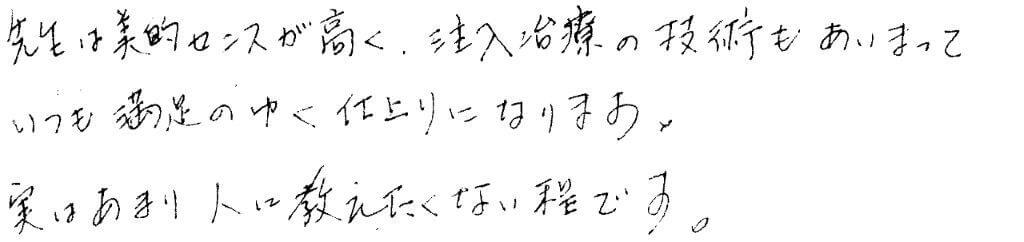 先生は美的センスが高く、注入治療の技術もあいまって
いつも満足のゆく仕上りになります。
実はあまり人に教えたくない程です。